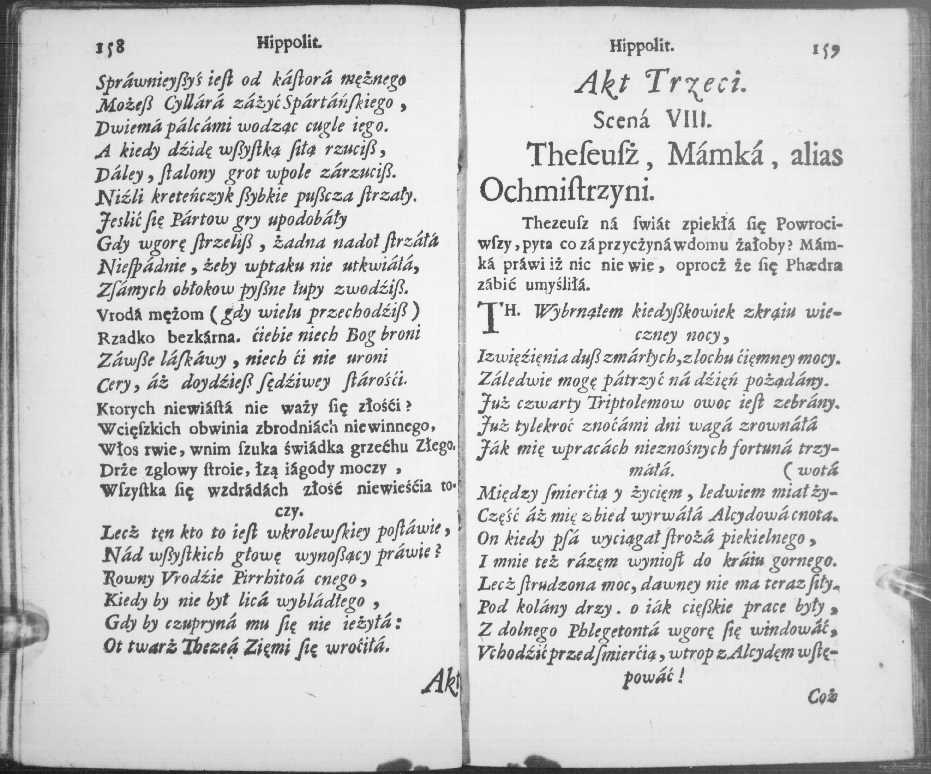 158 Hippolit.
Spráwnieyßyś ieſt od káſtorá mężnego
Możeß Cyllárá záżyć Spártáńſkiego ,
Dwiemá pálcámi wodząc cugle iego.
A kiedy dźidę wßyſtką ſiłą rzuciß,
Dáley, ſtalony grot wpole zárzuciß.
Niźli kreteńczyk ßybkie pußcza ſtrzały.
Jeslić ſię Pártow gry upodobáły
Gdy wgorę ſtrzeliß , żadna nadoł ſtrzáłá
Nieſpádnie , żeby wptaku nie utkwiáłá,
Zſámych obłokow pyßne łupy zwodźiß.
Vrodá mężom ( gdy wielu przechodźiß )
Rzadko bezkárna. ćiebie niech Bog broni
Záwße láſkáwy , niech ći nie uroni
Cery, áż doydźieß ſędźiwey ſtárośći.
Ktorych niewiáſtá nie waży ſię złośći ?
Wcięſzkich obwinia zbrodniách niewinnego,
Włos rwie, wnim ſzuka świádka grzećhu Złego.
Drże zgłowy ſtroie, łzą iágody moczy ,
Wſzyſtka ſię wzdrádách złość niewieśćia to-
czy.
Lecż tęn kto to ieſt wkrolewſkiey poſtáwie,
Nád wßyſtkich głowę wynoßący práwie ?
Rowny Vrodźie Pirrhitoá cnego,
Kiedy by nie był licá wybládłego ,
Gdy by czupryná mu ſię nie ieżyłá :
Ot twarż Thezeá Zięmi ſię wroćiłá.
Akt
Hippolit. 159
Akt Trzeci.
Scená VIII.
Theſeuſż , Mámká , alias
Ochmiſtrzyni.
Thezeuſz ná ſwiát zpiekłá ſię Powroci-
wſzy, pyta co zá przycżyná wdomu żałoby ? Mám-
ká práwi iż nic nie wie, oprocż że ſię Phædra
zábić umyśliłá.
TH. Wybrnąłem kiedyßkowiek zkráiu wie-
czney nocy,
Izwięźięnia duß zmárłych, zlochu ćięmney mocy.
Záledwie mogę pátrzyć ná dźięń pożądány.
Już czwarty Triptolemow owoc ieſt zebrány.
Już tylekroć znoćámi dni wagá zrownáłá
Ják mię wpracách nieznośnych fortuná trzy-
máłá. ( wotá
Między ſmierćią y życięm , ledwiem miał ży-
Część áż mię zbied wyrwáłá Alcydowá cnota.
On kiedy pſá wyciągał ſtrożá piekielnego ,
I mnie też rázęm wynioſł do kráiu gornego.
Lecż ſtrudzona moc, dawney nie ma teraz ſiły.
Pod kolány drzy . o iák cięßkie prace były ,
Z dolnego Phlegetontá wgorę ſię windowáć,
Vchodźić przed ſmierćią, wtrop z Alcydęm wſtę-
powáć !
Coż